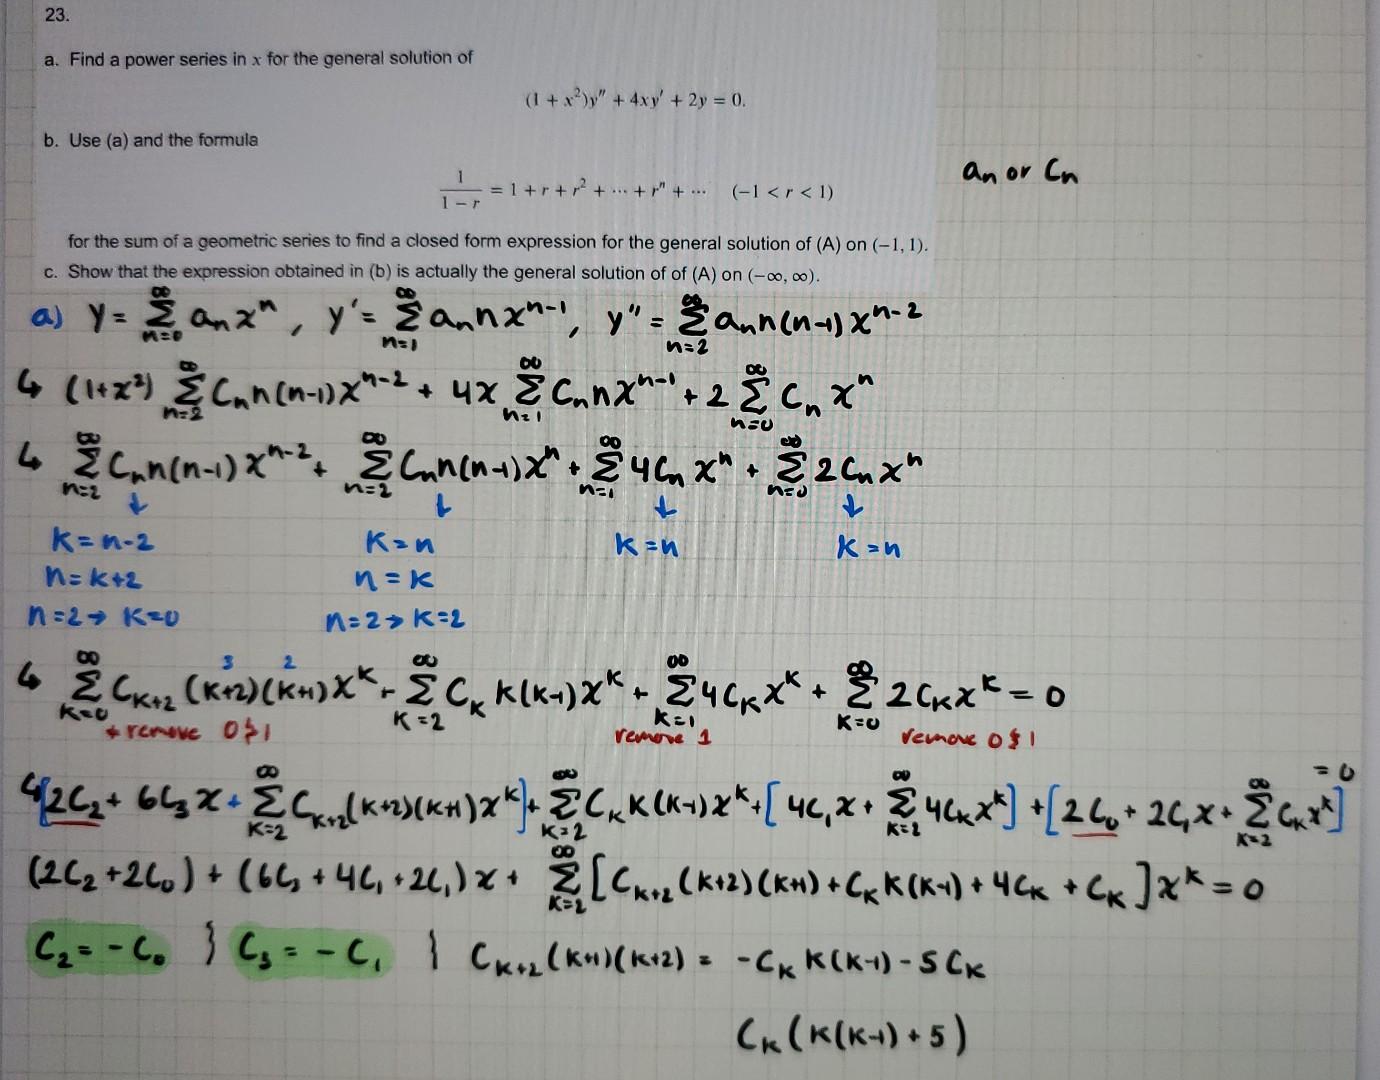 23.
a. Find a power series in x for the general solution of
(1 + x²)y″ + 4xy′ + 2y = 0.
b. Use (a) and the formula
1/(1 − r) = 1 + r + r² + ⋯ + rⁿ + ⋯ (−1 < r < 1)
an or Cn
for the sum of a geometric series to find a closed form expression for the general solution of (A) on (−1, 1).
c. Show that the expression obtained in (b) is actually the general solution of of (A) on (−∞, ∞).
a) y = ∞ Σ n=0 aₙxⁿ , y' = ∞ Σ n=1 aₙnxⁿ⁻¹, y'' = ∞ Σ n=2 aₙn(n-1)xⁿ⁻²
↳ (1+x²) ∞ Σ n=2 Cₙn(n-1)xⁿ⁻² + 4x ∞ Σ n=1 Cₙnxⁿ⁻¹ + 2 ∞ Σ n=0 Cₙxⁿ
↳ ∞ Σ n=2 Cₙn(n-1)xⁿ⁻² + ∞ Σ n=2 Cₙn(n-1)xⁿ + ∞ Σ n=1 4Cₙxⁿ + ∞ Σ n=0 2Cₙxⁿ
↓ ↓ ↓ ↓
K = n-2 K = n K = n K = n
n = k+2 n = K
n=2 → K=0 n=2 → K=2
3 2
↳ ∞ Σ K=0 C_{K+2}(K+2)(K+1)x^K + ∞ Σ K=2 C_K K(K-1)x^K + ∞ Σ K=1 4C_K x^K + ∞ Σ K=0 2C_K x^K = 0
+ remove 0 & 1 remove 1 remove 0 & 1
↳ [2C₂ + 6C₃x + ∞ Σ K=2 C_{K+2}(K+2)(K+1)x^K] + ∞ Σ K=2 C_K K(K-1)x^K + [4C₁x + ∞ Σ K=2 4C_K x^K] + [2C₀ + 2C₁x + ∞ Σ K=2 C_K x^K] = 0
(2C₂ + 2C₀) + (6C₃ + 4C₁ + 2C₁)x + ∞ Σ K=2 [C_{K+2}(K+2)(K+1) + C_K K(K-1) + 4C_K + C_K]x^K = 0
C₂ = -C₀ } C₃ = -C₁ } C_{K+2}(K+1)(K+2) = -C_K K(K-1) - 5C_K
C_K(K(K-1) + 5)